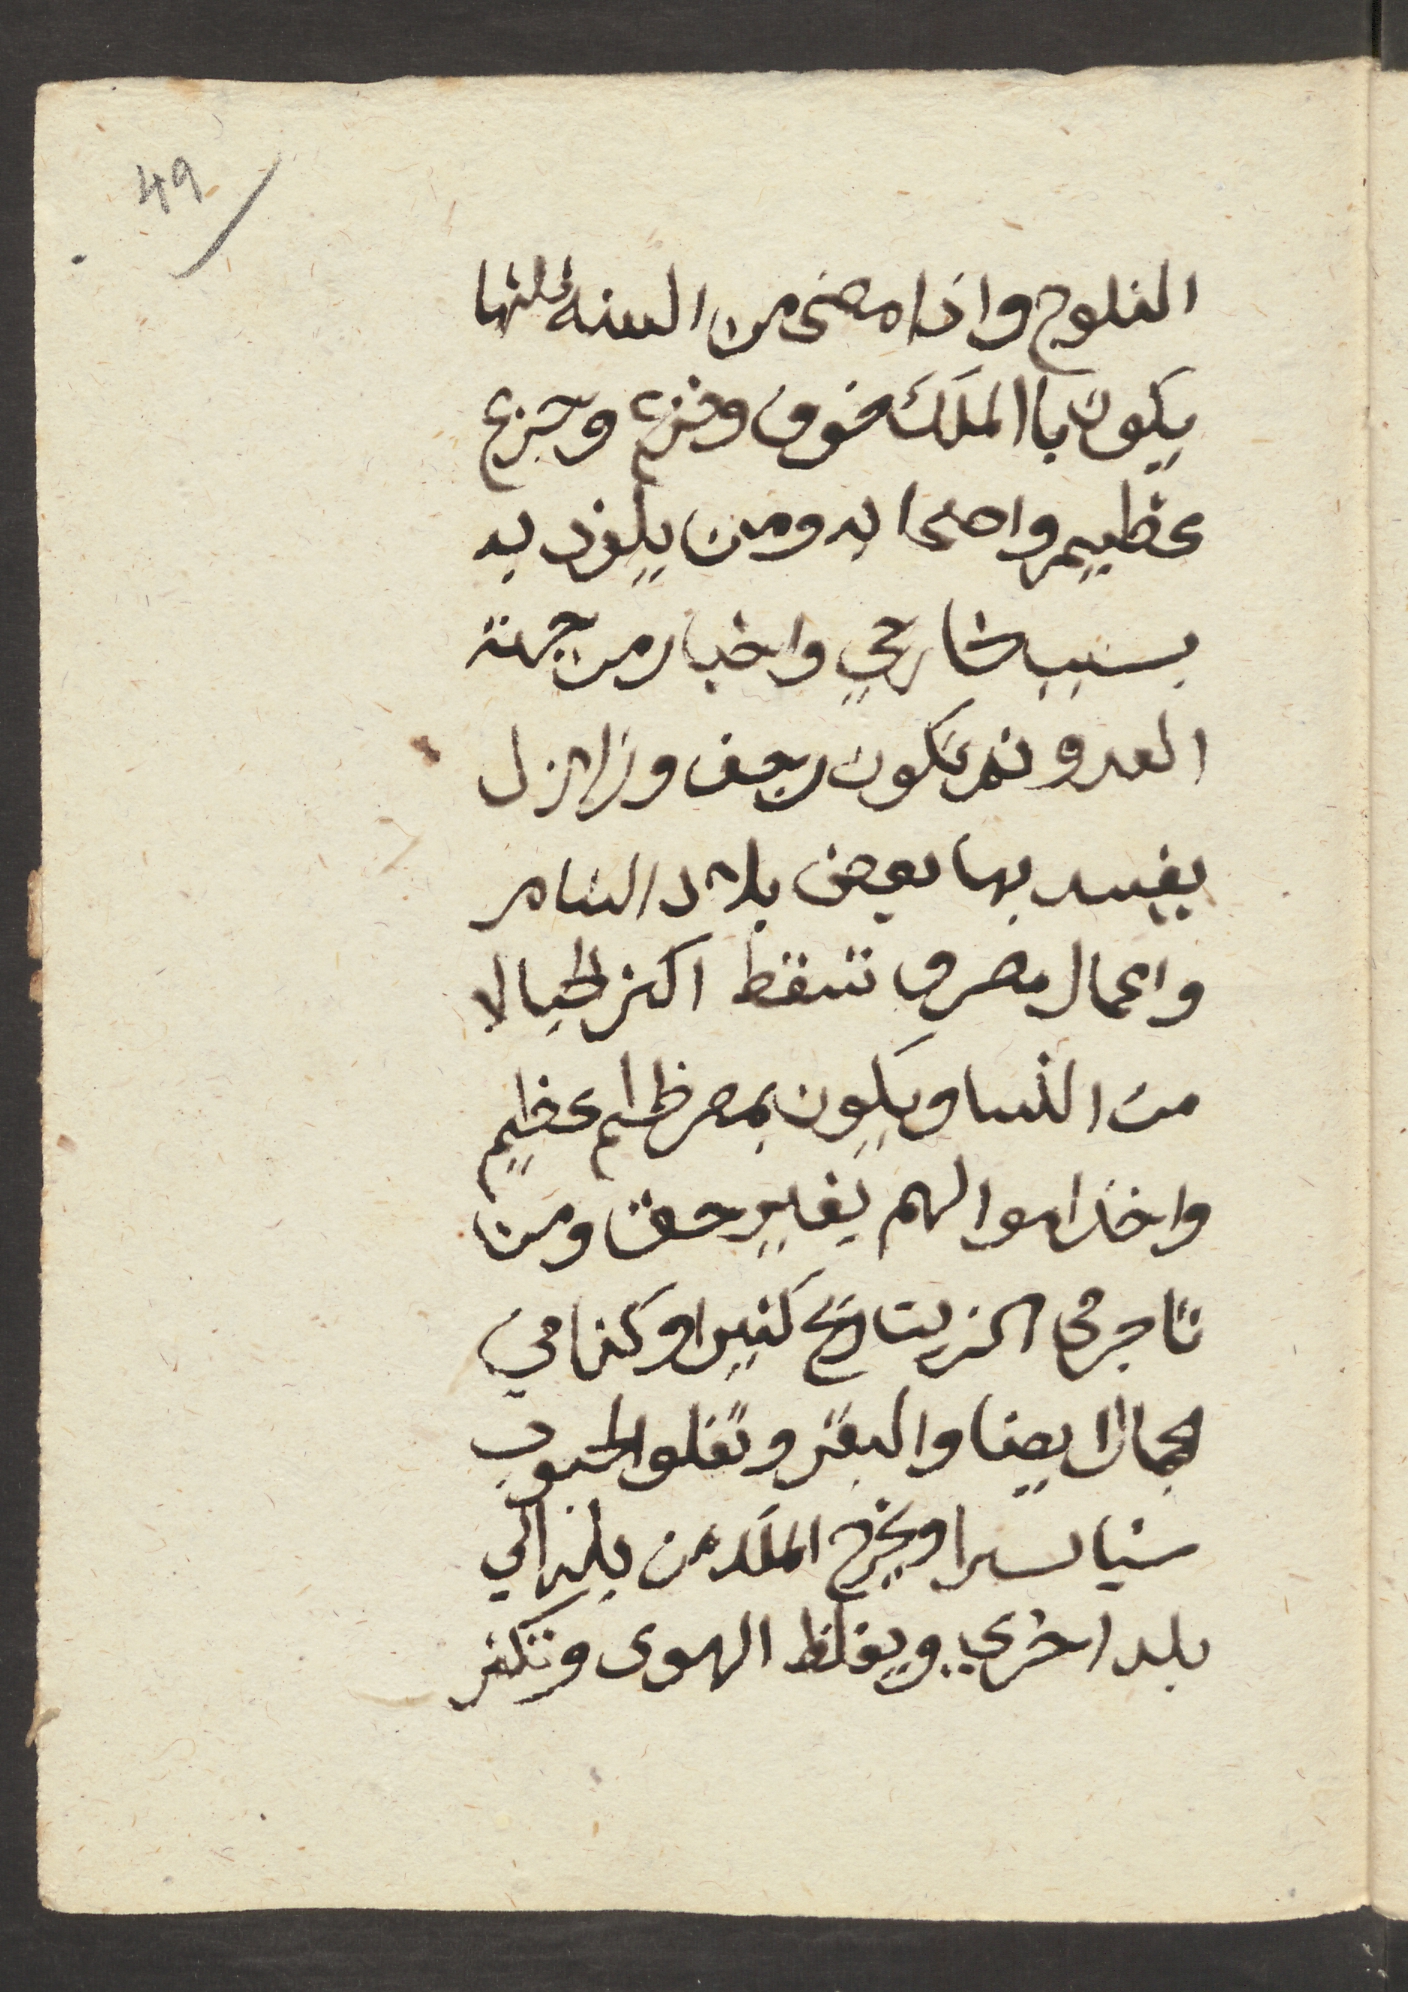 49
الفلوج واذا مضى من السنة ثلثها
يكون باالملك خوف وفزع وجزع
عظيم واصحابه ومن يلوذ به
بسبب خارجي واخبار من جهة
العدو ثم تكون رجف وزلازل
يفسد بها بعض بلاد الشام
واعمال مصر وتسقط اكثر الحبالا
من النسا ويكون بمصر ظلم عظيم
واخذ اموالهم بغير حق ومن
تاجر في الزيت ربح كثيرا وكذا في
الجمال ايضا والبقر وتغلوا الحبوب
شيا يسيرا ويخرج الملك من بلد الي
بلد اخري ويغلظ الهوى وتكثر